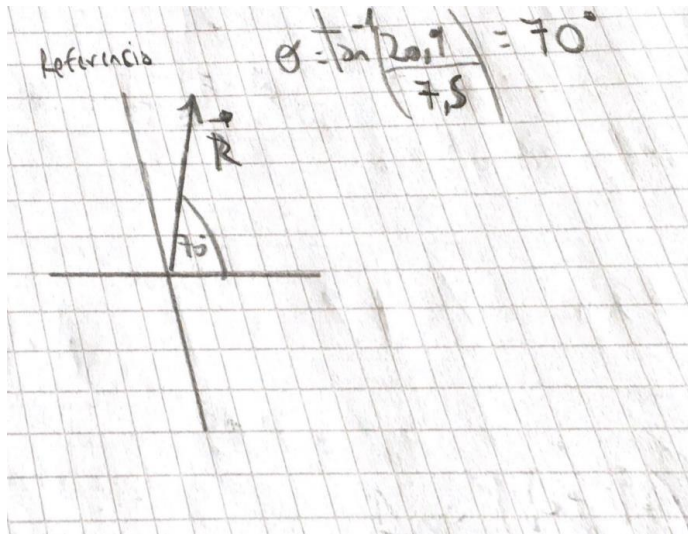 Referencia
θ = Tan⁻¹(20,9/7,5) = 70°
R⃗
70°